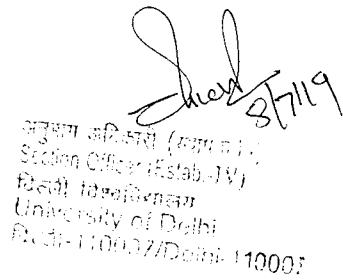 8/7/19
अनुभाग अधिकारी
Section Officer (Estab.-IV)
दिल्ली विश्वविद्यालय
University of Delhi
दिल्ली-110007/Delhi-110007